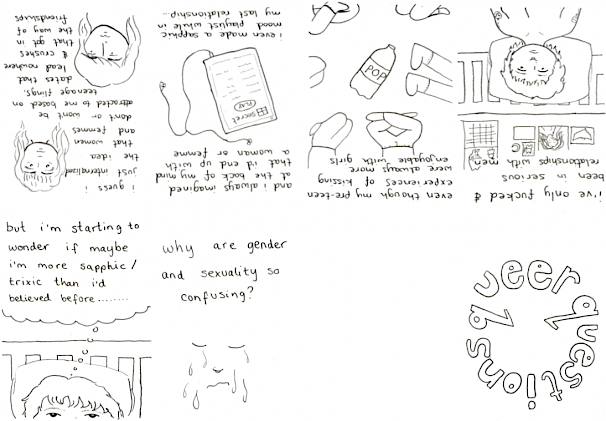 queer questions
i've only fucked &
been in serious
relationships with men
even though my pre-teen
experiences of kissing
were always more
enjoyable with girls
POP
and i always imagined
at the back of my mind
that i'd end up with
a woman or femme
secret
PLAY
i even made a sapphic
mood playlist while in
my last relationship...
i guess i
just internalized
the idea
that women
and femmes
don't or won't be
attracted to me based on
teenage flings,
dates that
lead nowhere
& crushes
that got in
the way of
friendships
but i'm starting to
wonder if maybe
i'm more sapphic/
trixic than i'd
believed before........
why are gender
and sexuality so
confusing?